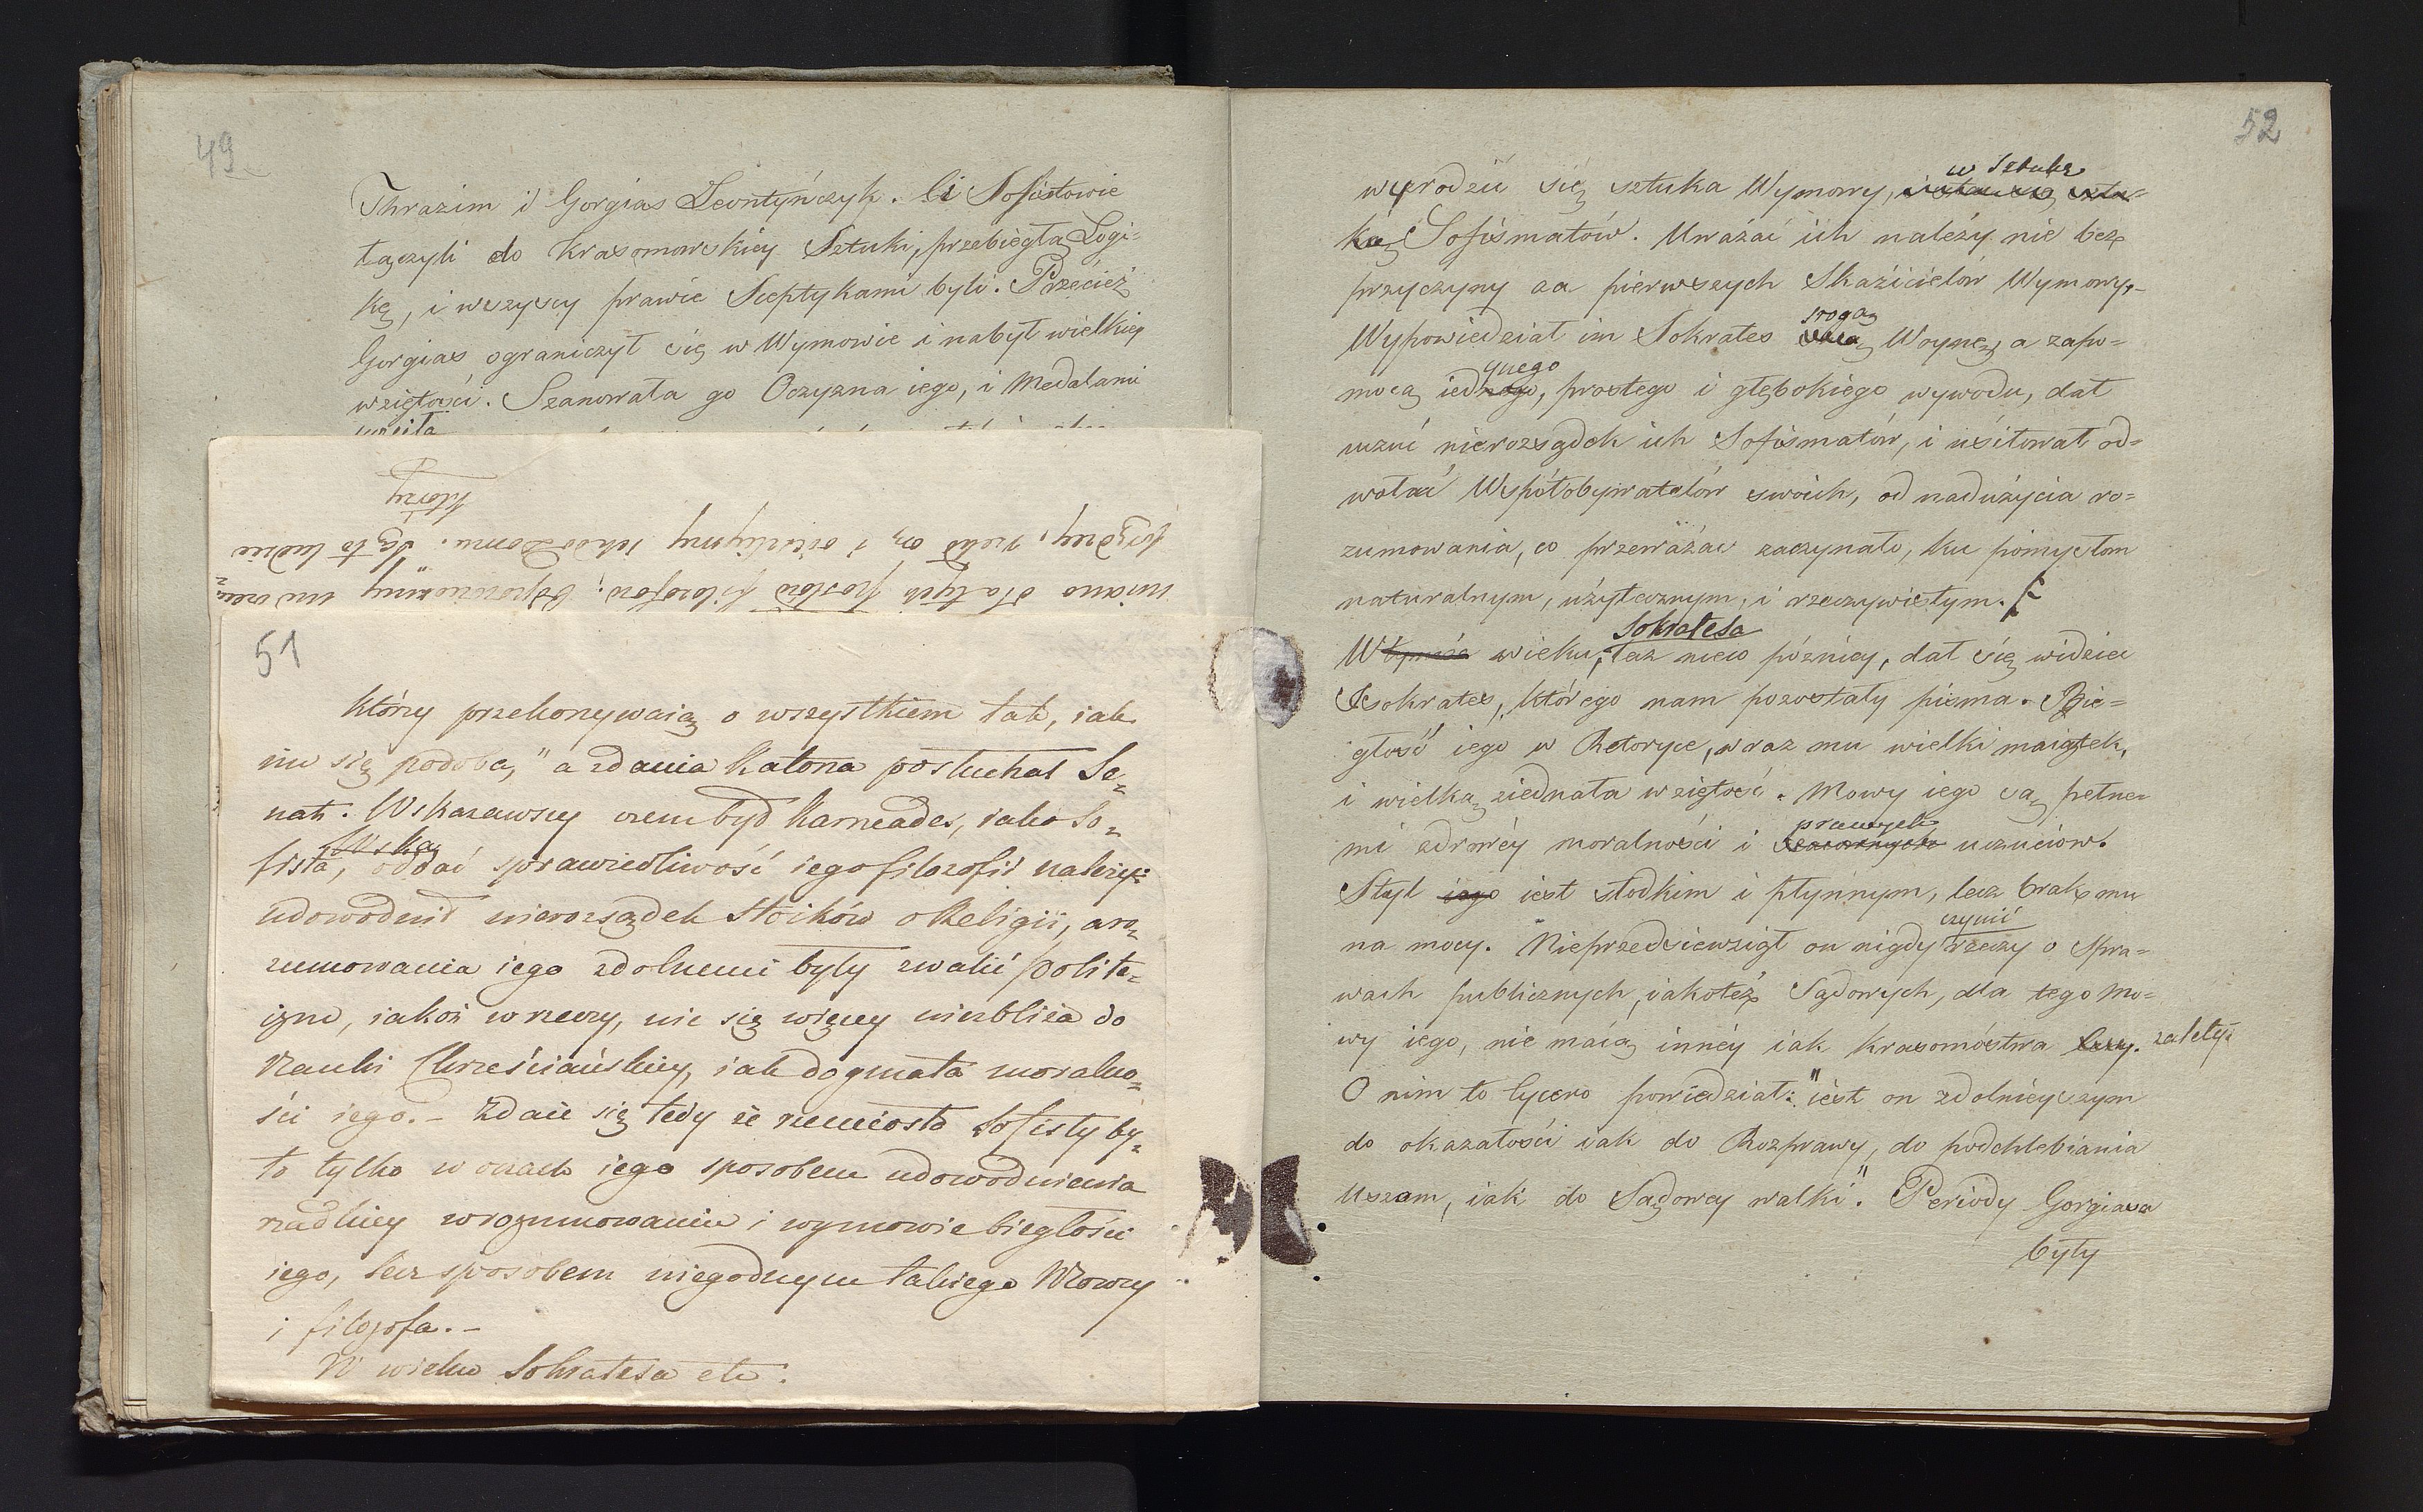 49
Thrazim i Gorgias Leontyńczyk. Ci Sofistowie
łączyli do Krasomowskiey Sztuki, przebiegłą Logi=
kę, i wszyscy prawie Sceptykami byli. Przecież
Gorgias ograniczył się w Wymowie i nabył wielkiey
wziętości. Szanowała go Oczyzna iego, i Medalami
uczciła
umiano dla tych posłów filozofów; Odprawiemy im rzecz
prędzey, rzekł on, i odeślijmy ich do Domu. Są to ludzie
którzy
51
którzy przekonywaią o wszystkiem tak, iak
im się podoba," a zdania Katona posłuchał Se=
nat. Wskazawszy czem był Karneades, iako So=
fista, oddać sprawiedliwość iego filozofii należy:
udowodnił nierozsądek Stoików o Religii, a ro=
zumowania iego zdolnemi były zwalić polite=
izm, iakoż w rzeczy, nic się więcey niezbliża do
Nauki Chrześciańskiey, iak dogmata moralno=
ści iego. - Zdaie się tedy że rzemiosło Sofisty by=
ło tylko w oczach iego sposobem udowodnienia
rzadkiey w rozumowaniu i wymowie biegłości
iego, lecz sposobem niegodnym takiego Mowcy
i filozofa. -
W wieku Sokratesa etc.
52
wyrodzić się sztuka Wymowy, w Sztukę
ką Sofismatów. Uważać ich należy nie bez
przyczyny za pierwszych Skazicielów Wymowy.-
Wypowiedział im Sokrates srogą Woynę, a zapo=
mocą iednego, prostego i głębokiego wywodu, dał
uczuć nierozsądek ich Sofismatów, i usiłował od=
wołać Współobywatelów swoich, od nadużycia ro=
zumowania, co przeważać zaczynało, ku pomysłom
naturalnym, użytecznym, i rzeczywistym.
W wieku Sokratesa, lecz nieco pózniey, dał się widzieć
Isokrates, którego nam pozostały pisma. Bie=
głość iego w Retoryce, wraz mu wielki maiątek,
i wielką ziednała wziętość. Mowy iego są pełne=
mi zdrowéy moralności i prawych uczuciów.
Styl iego iest słodkim i płynnym, lecz brak mu
na mocy. Nieprzedsiewziął on nigdy czynić rzeczy o Spra=
wach publicznych, iakoteż Sądowych, dla tego Mo=
wy iego, nie máią innéy iak Krasomóstwa zalety.
O nim to Cycero powiedział: "iest on zdolnieyszym
do okazałości iak do Rozprawy, do podchlebiania
Uszom, iak do Sądowey walki". Periody Gorgiasa
były